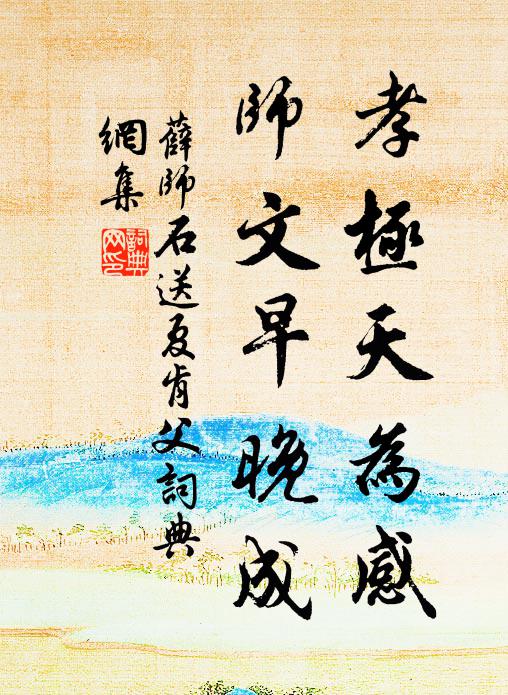 孝極天為感
師文早晚成
薛師石送夏肯父詞典
網集
詞典网印